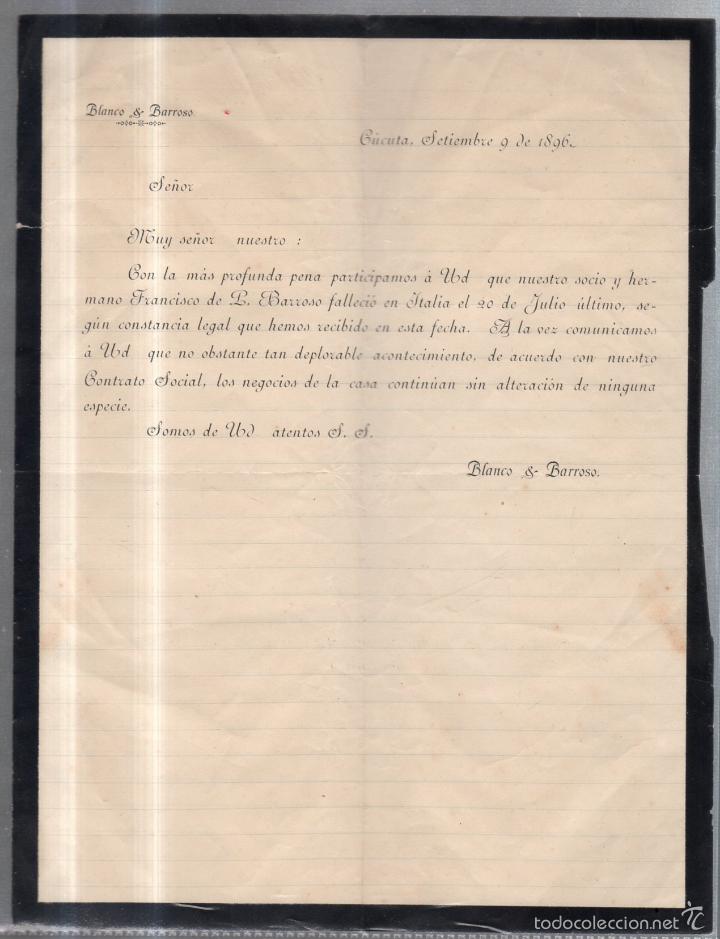 Blanco & Barroso
Cúcuta, Setiembre 9 de 1896.
Señor
Muy señor nuestro :
Con la más profunda pena participamos á Ud que nuestro socio y her-
mano Francisco de P. Barroso falleció en Italia el 20 de Julio último, se-
gún constancia legal que hemos recibido en esta fecha. A la vez comunicamos
á Ud que no obstante tan deplorable acontecimiento, de acuerdo con nuestro
Contrato Social, los negocios de la casa continúan sin alteración de ninguna
especie.
Somos de Ud atentos S. S.
Blanco & Barroso.
todocoleccion.net